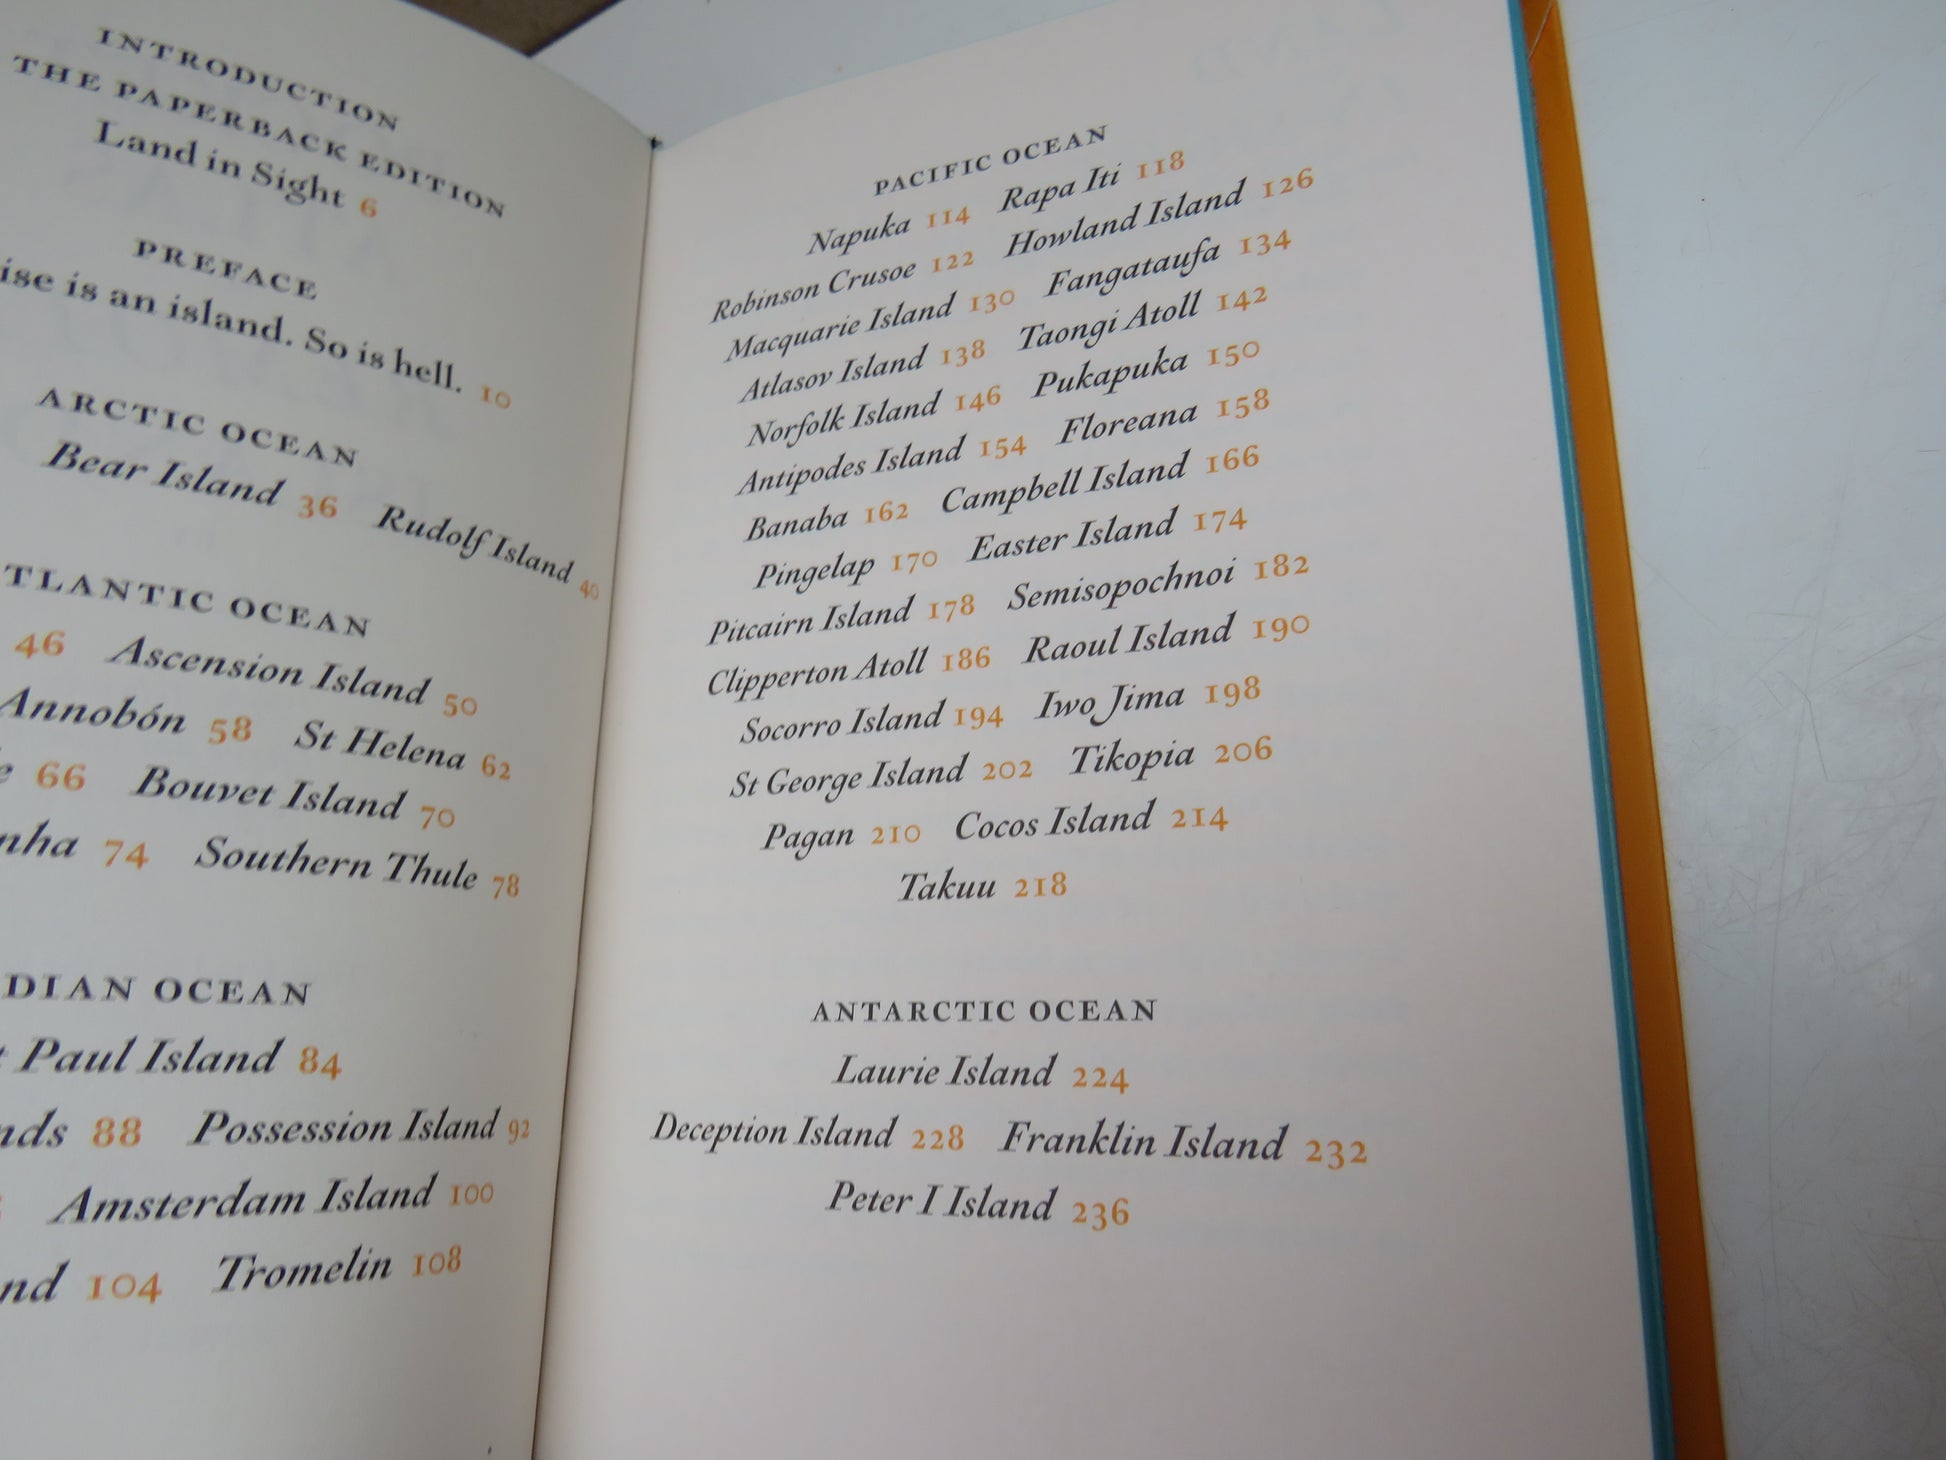 INTRODUCTION
THE PAPERBACK EDITION
Land in Sight 6
PREFACE
is an island. So is hell. 10
ARCTIC OCEAN
Bear Island 36 Rudolf Island 40
OCEAN
46 Ascension Island 50
Annobón 58 St Helena 62
66 Bouvet Island 70
74 Southern Thule 78
OCEAN
Paul Island 84
88 Possession Island 92
Amsterdam Island 100
104 Tromelin 108
PACIFIC OCEAN
Napuka 114 Rapa Iti 118
Robinson Crusoe 122 Howland Island 126
Macquarie Island 130 Fangataufa 134
Atlasov Island 138 Taongi Atoll 142
Norfolk Island 146 Pukapuka 150
Antipodes Island 154 Floreana 158
Banaba 162 Campbell Island 166
Pingelap 170 Easter Island 174
Pitcairn Island 178 Semisopochnoi 182
Clipperton Atoll 186 Raoul Island 190
Socorro Island 194 Iwo Jima 198
St George Island 202 Tikopia 206
Pagan 210 Cocos Island 214
Takuu 218
ANTARCTIC OCEAN
Laurie Island 224
Deception Island 228 Franklin Island 232
Peter I Island 236